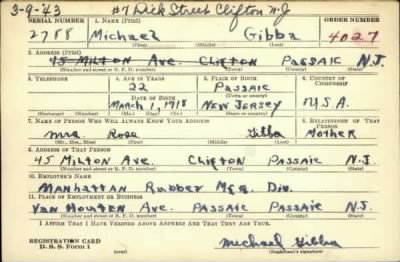 3-9-43 #7 Dick Street Clifton N.J
SERIAL NUMBER 1. NAME (Print) ORDER NUMBER
2788 Michael Gibba 4027
(First) (Middle) (Last)
2. ADDRESS (Print)
45 Milton Ave. Clifton Passaic N.J.
(Number and street or R. F. D. number) (Town) (County) (State)
3. TELEPHONE 4. AGE IN YEARS 5. PLACE OF BIRTH 6. COUNTRY OF CITIZENSHIP
22 Passaic
DATE OF BIRTH (Town or county)
March 1, 1918 New Jersey U.S.A.
(Mo.) (Day) (Yr.) (State or country)
7. NAME OF PERSON WHO WILL ALWAYS KNOW YOUR ADDRESS 8. RELATIONSHIP OF THAT PERSON
Mrs Rose Gibba Mother
(Mr., Mrs., Miss) (First) (Middle) (Last)
9. ADDRESS OF THAT PERSON
45 Milton Ave. Clifton Passaic N.J.
(Number and street or R. F. D. number) (Town) (County) (State)
10. EMPLOYER'S NAME
Manhattan Rubber Mfg. Div.
11. PLACE OF EMPLOYMENT OR BUSINESS
Van Houten Ave Passaic Passaic N.J.
(Number and street or R. F. D. number) (Town) (County) (State)
I AFFIRM THAT I HAVE VERIFIED ABOVE ANSWERS AND THAT THEY ARE TRUE.
REGISTRATION CARD Michael Gibba
D. S. S. Form 1 (Registrant's signature)